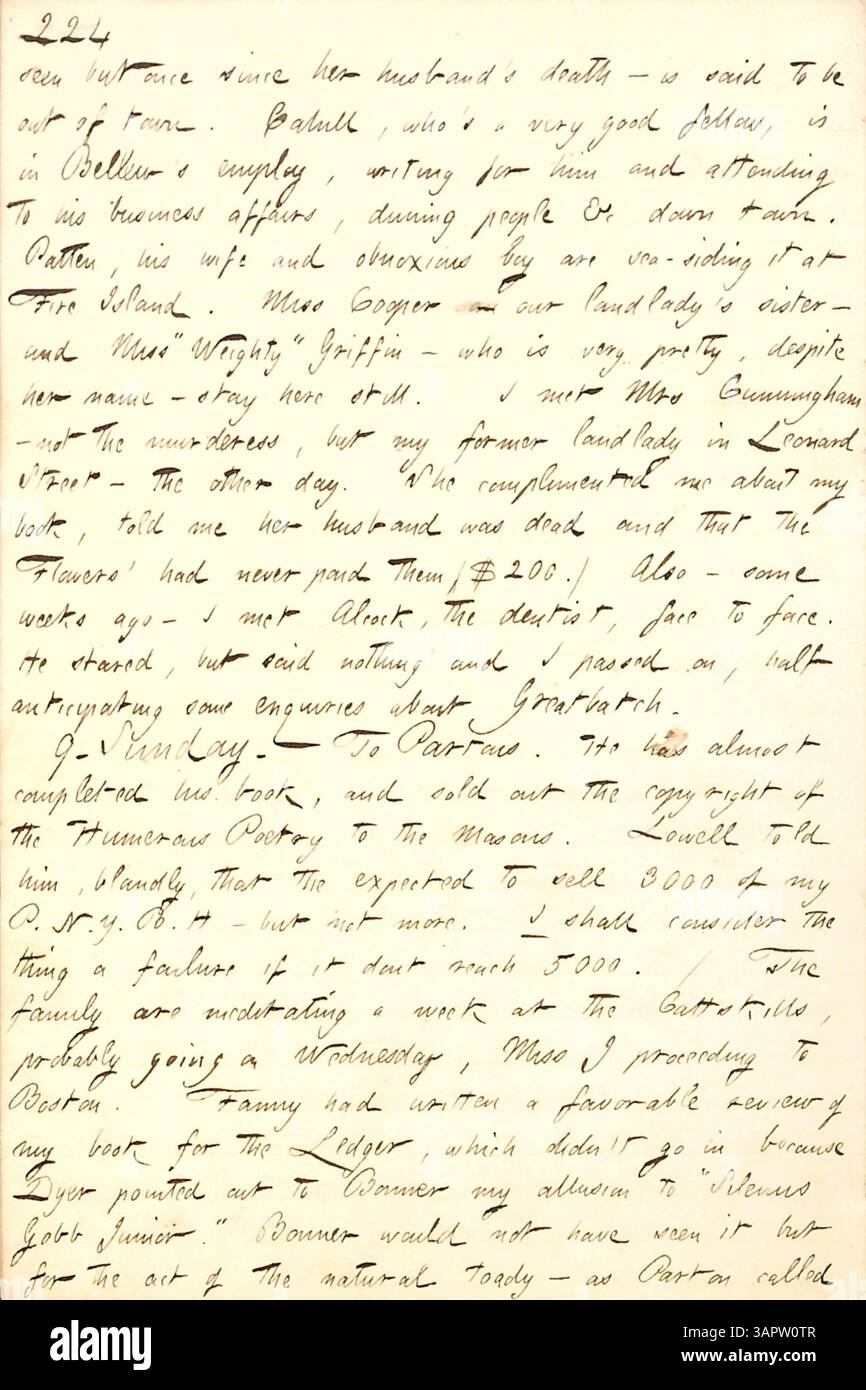 224
seen but once since her husband's death — is said to be
out of town. Cahill, who's a very good fellow, is
in Bellew's employ, writing for him and attending
to his business affairs, dunning people &c down town.
Patten, his wife and obnoxious boy are sea-siding it at
Fire Island. Miss Cooper our landlady's sister —
and Miss "Weighty" Griffin — who is very pretty, despite
her name — stay here still. I met Mrs Cunningham
— not the murderess, but my former landlady in Leonard
Street — the other day. She complimented me about my
book, told me her husband was dead and that the
Flowers' had never paid them ($200.) Also — some
weeks ago — I met Alcock, the dentist, face to face.
He stared, but said nothing and I passed on, half
anticipating some enquiries about Greatbatch.
9. Sunday. — To Partons. He has almost
completed his book, and sold out the copyright of
the Humerous Poetry to the Masons. Lowell told
him, blandly, that the expected to sell 3000 of my
P. N. Y. B. H — but not more. I shall consider the
thing a failure if it dont reach 5000. / The
family are meditating a week at the Cattskills,
probably going on Wednesday, Miss J proceeding to
Boston. Fanny had written a favorable review of
my book for the Ledger, which didn't go in because
Dyer pointed out to Bonner my allusion to "Silenus
Gobb Junior." Bonner would not have seen it but
for the act of the natural toady — as Parton called
alamy
Image ID: 3APW0TR
www.alamy.com